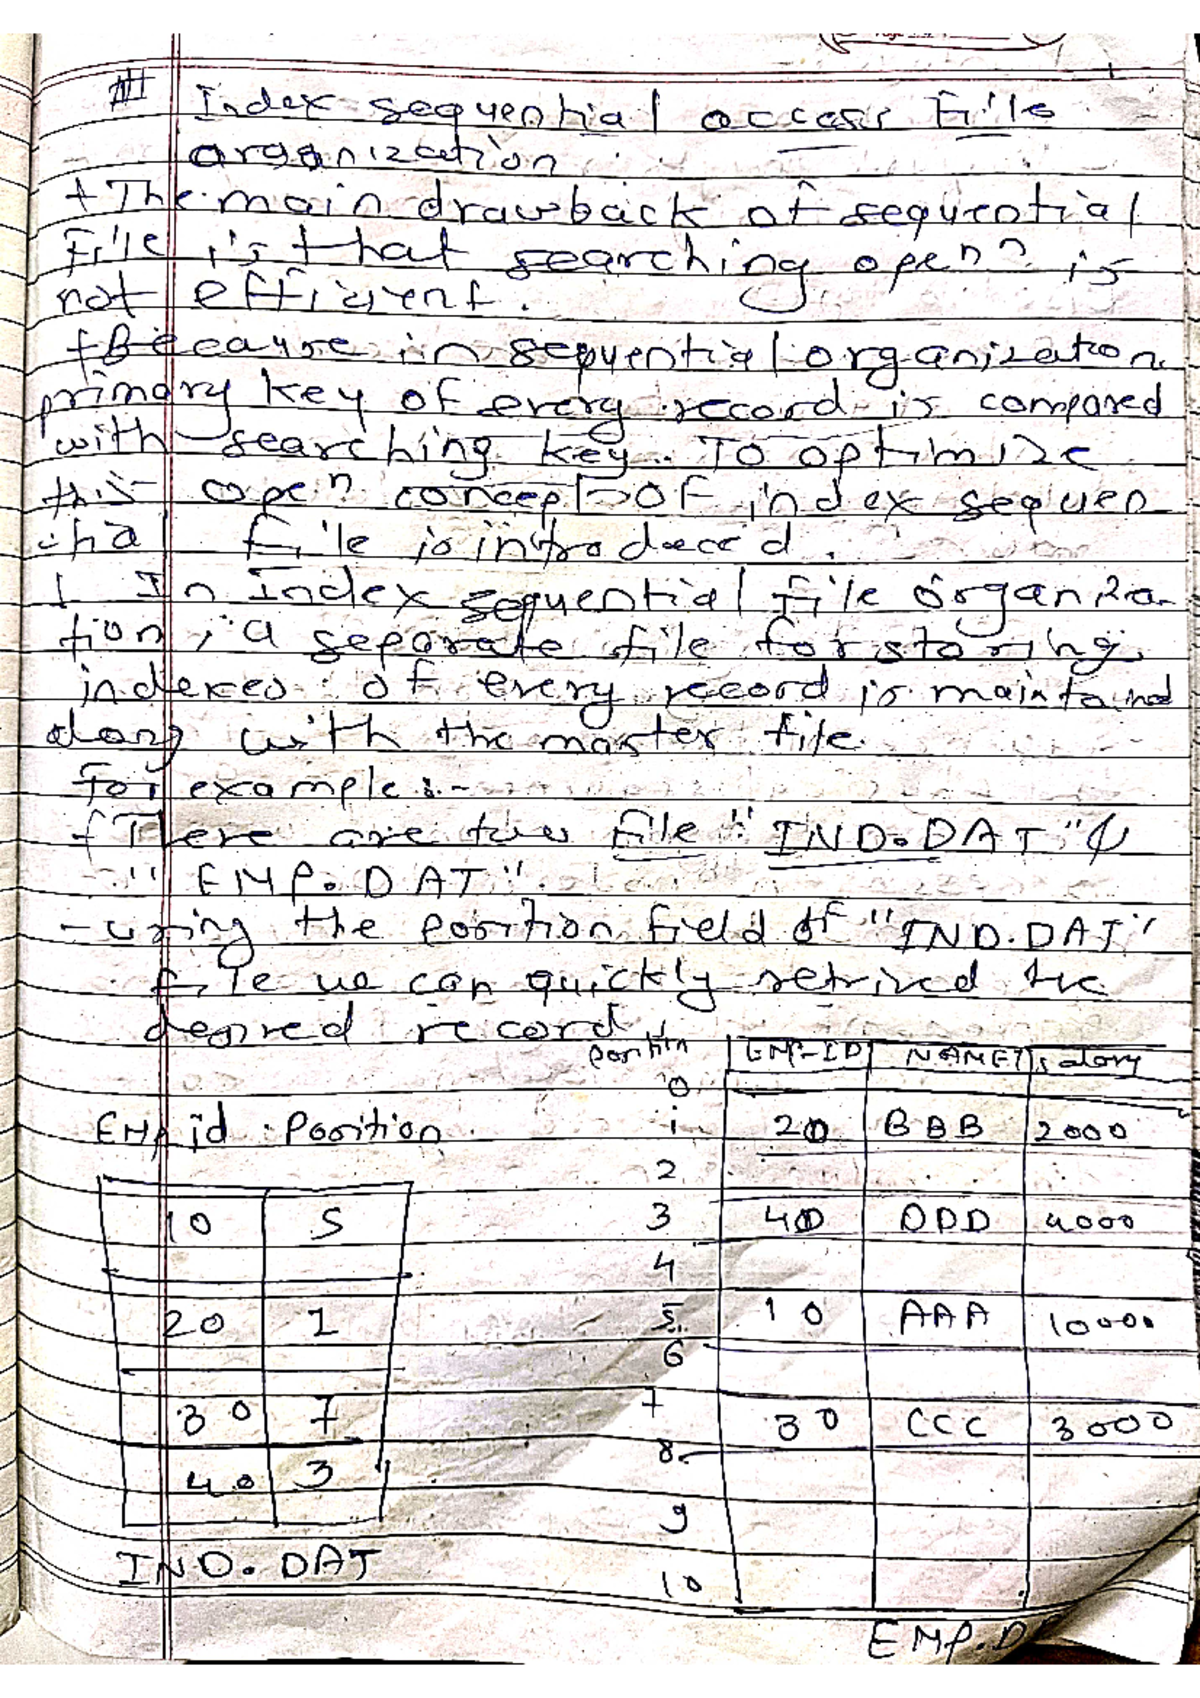 # Index sequential access File
organization
+ The main drawback of sequential
File is that searching open? is
not efficient.
+ Because in sequential organization
primary key of every record is compared
with searching key. To optimize
this open concept of index sequen
tial file is introduced.
1 In Index sequential File organiza-
tion, a separate file for storing
indexes of every record is maintained
along with the master file.
For example :-
+ There are two File "IND.DAT" &
"EMP.DAT".
- using the position field of "IND.DAT"
file we can quickly retrived the
desired record
position EMP-ID NAME salary
0
1 20 BBB 2000
2
3 40 DDD 4000
4
5 10 AAA 10000
6
7 30 CCC 3000
8
9
10
EMP.D
EMP id Position
10 5
20 1
30 7
40 3
IND.DAT